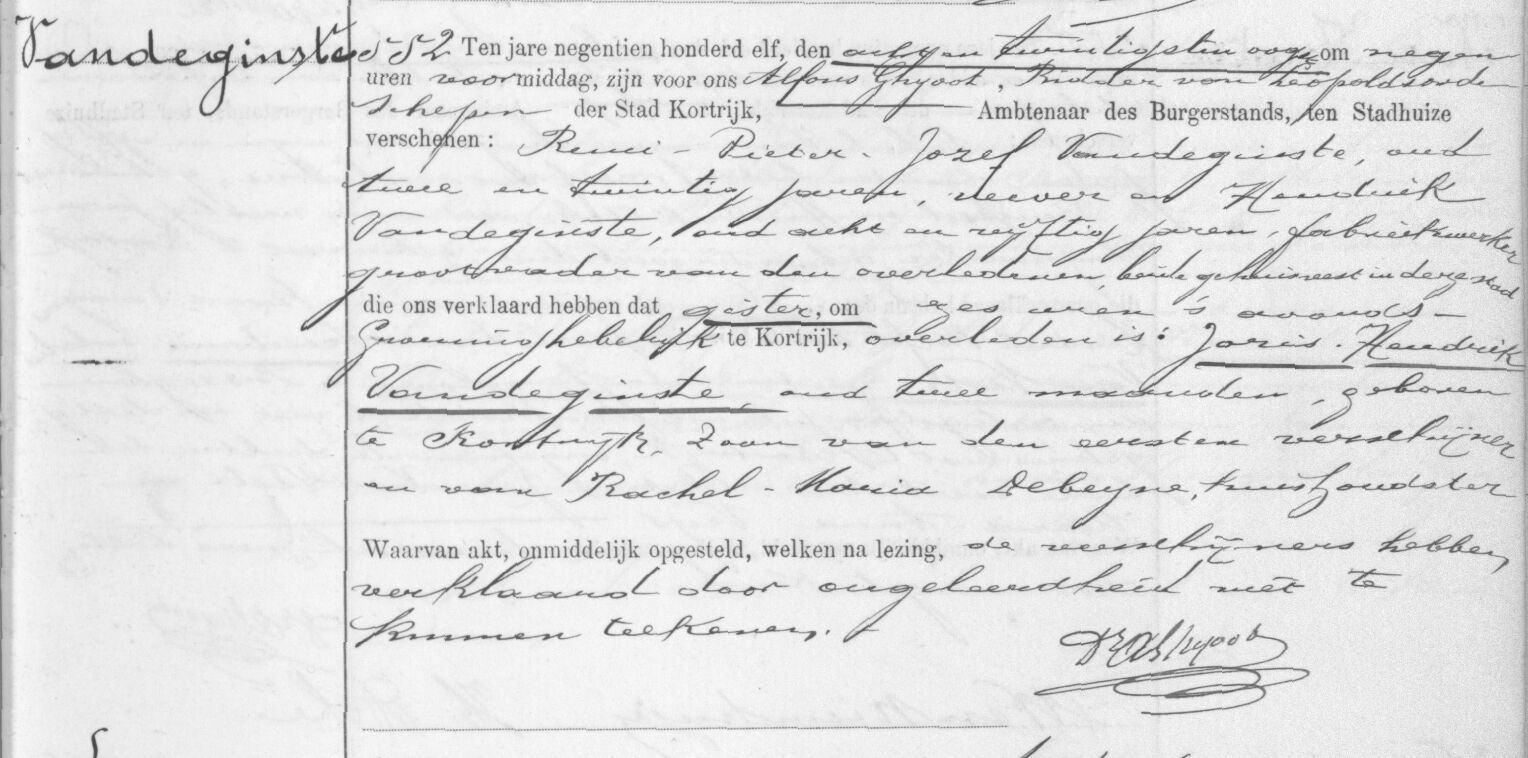 Vandeginste 552 Ten jare negentien honderd elf, den acht en twintigsten oogst om negen
uren voormiddag, zijn voor ons Alfons Ghyoot, Ridder van Leopoldsorde
schepen der Stad Kortrijk, Ambtenaar des Burgerstands, ten Stadhuize
verschenen : Remi - Pieter - Jozef Vandeginste, oud
twee en twintig jaren, wever en Hendrik
Vandeginste, oud acht en vijftig jaren, fabriekwerker
grootvader van den overledenen, beide gehuisvest in deze stad
die ons verklaard hebben dat gister, om zes uren 's avonds -
Groeninghebeluik te Kortrijk, overleden is : Joris - Hendrik
Vandeginste, oud twee maanden, geboren
te Kortrijk, zoon van den eersten verschijner
en van Rachel - Maria Debeyne, huishoudster
Waarvan akt, onmiddelijk opgesteld, welken na lezing, de verschijners hebben
verklaard door ongeleerdheid niet te
kunnen teekenen.